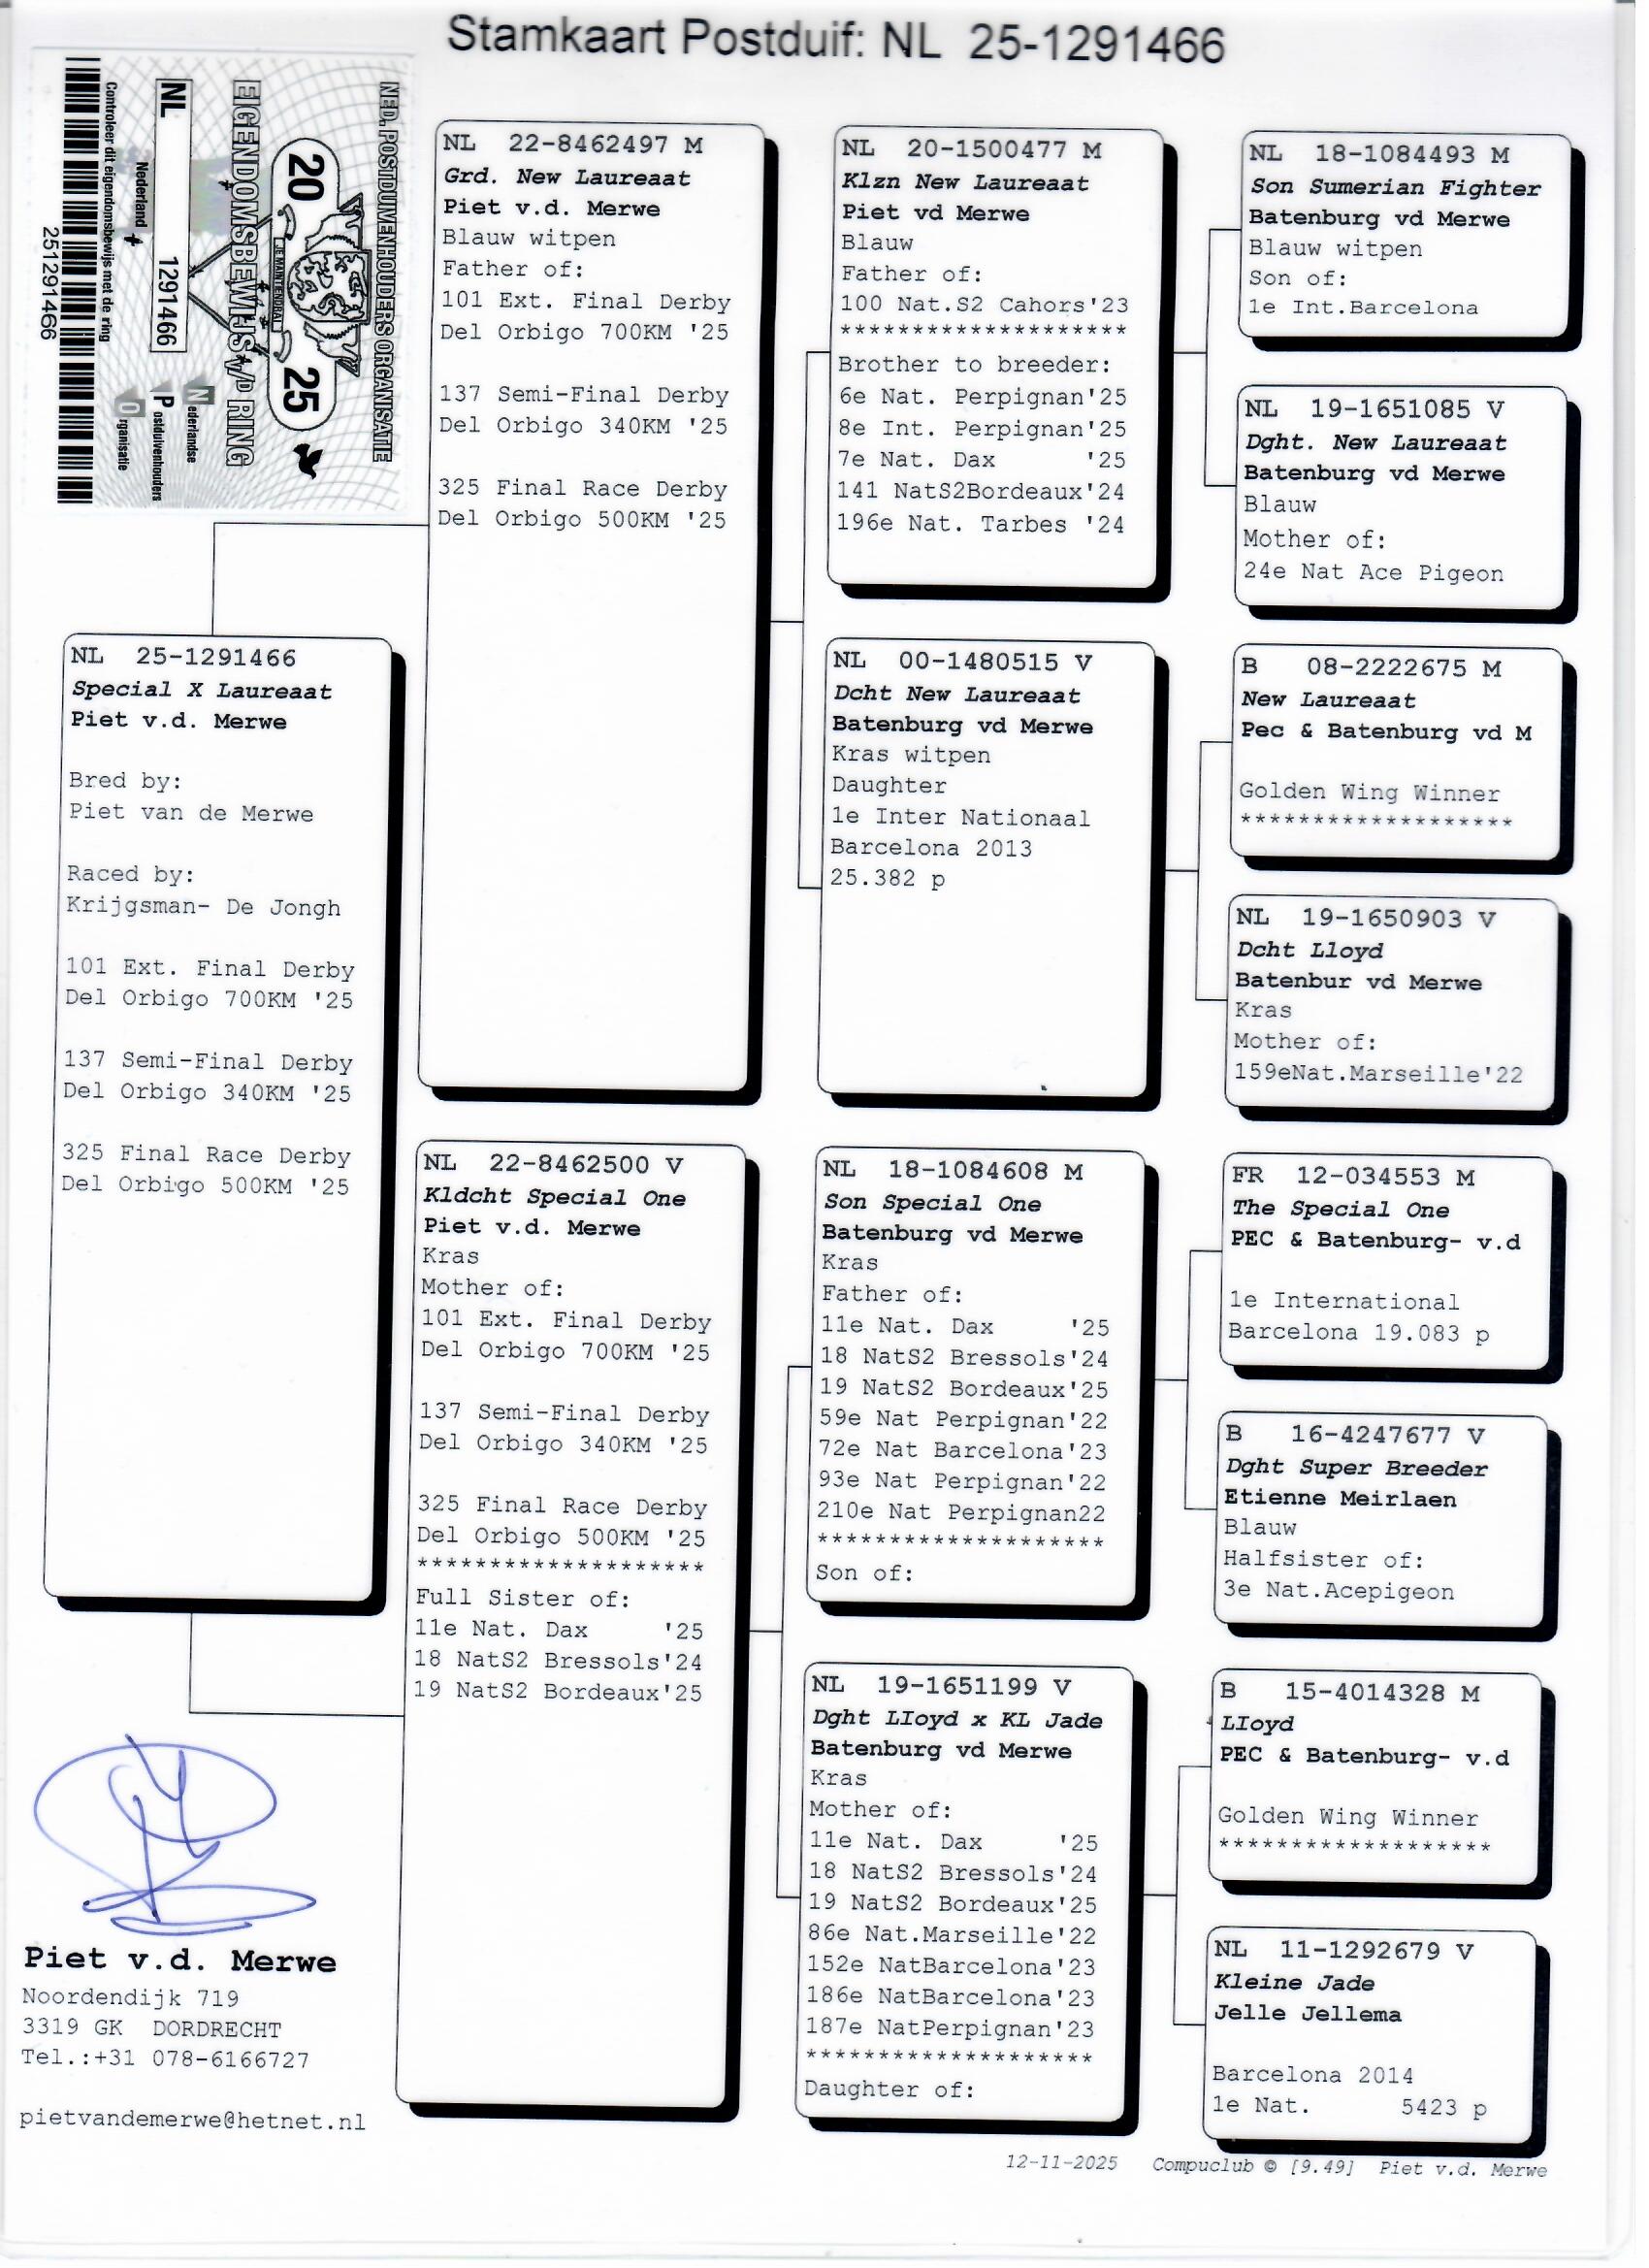 Stamkaart Postduif: NL 25-1291466
NED. POSTDUIVENHOUDERS ORGANISATIE
20 25
JE MAINTIENDRAI
EIGENDOMSBEWIJS v/D RING
Nederlandse
Postduivenhouders
Organisatie
NL 1291466
Nederland
Controleer dit eigendomsbewijs met de ring
251291466
NL 25-1291466
Special X Laureaat
Piet v.d. Merwe
Bred by:
Piet van de Merwe
Raced by:
Krijgsman- De Jongh
101 Ext. Final Derby
Del Orbigo 700KM '25
137 Semi-Final Derby
Del Orbigo 340KM '25
325 Final Race Derby
Del Orbigo 500KM '25
NL 22-8462497 M
Grd. New Laureaat
Piet v.d. Merwe
Blauw witpen
Father of:
101 Ext. Final Derby
Del Orbigo 700KM '25
137 Semi-Final Derby
Del Orbigo 340KM '25
325 Final Race Derby
Del Orbigo 500KM '25
NL 22-8462500 V
Kldcht Special One
Piet v.d. Merwe
Kras
Mother of:
101 Ext. Final Derby
Del Orbigo 700KM '25
137 Semi-Final Derby
Del Orbigo 340KM '25
325 Final Race Derby
Del Orbigo 500KM '25
********************
Full Sister of:
11e Nat. Dax '25
18 NatS2 Bressols'24
19 NatS2 Bordeaux'25
NL 20-1500477 M
Klzn New Laureaat
Piet vd Merwe
Blauw
Father of:
100 Nat.S2 Cahors'23
********************
Brother to breeder:
6e Nat. Perpignan'25
8e Int. Perpignan'25
7e Nat. Dax '25
141 NatS2Bordeaux'24
196e Nat. Tarbes '24
NL 00-1480515 V
Dcht New Laureaat
Batenburg vd Merwe
Kras witpen
Daughter
1e Inter Nationaal
Barcelona 2013
25.382 p
NL 18-1084608 M
Son Special One
Batenburg vd Merwe
Kras
Father of:
11e Nat. Dax '25
18 NatS2 Bressols'24
19 NatS2 Bordeaux'25
59e Nat Perpignan'22
72e Nat Barcelona'23
93e Nat Perpignan'22
210e Nat Perpignan22
********************
Son of:
NL 19-1651199 V
Dght LIoyd x KL Jade
Batenburg vd Merwe
Kras
Mother of:
11e Nat. Dax '25
18 NatS2 Bressols'24
19 NatS2 Bordeaux'25
86e Nat.Marseille'22
152e NatBarcelona'23
186e NatBarcelona'23
187e NatPerpignan'23
********************
Daughter of:
NL 18-1084493 M
Son Sumerian Fighter
Batenburg vd Merwe
Blauw witpen
Son of:
1e Int.Barcelona
NL 19-1651085 V
Dght. New Laureaat
Batenburg vd Merwe
Blauw
Mother of:
24e Nat Ace Pigeon
B 08-2222675 M
New Laureaat
Pec & Batenburg vd M
Golden Wing Winner
*******************
NL 19-1650903 V
Dcht Lloyd
Batenbur vd Merwe
Kras
Mother of:
159eNat.Marseille'22
FR 12-034553 M
The Special One
PEC & Batenburg- v.d
1e International
Barcelona 19.083 p
B 16-4247677 V
Dght Super Breeder
Etienne Meirlaen
Blauw
Halfsister of:
3e Nat.Acepigeon
B 15-4014328 M
LIoyd
PEC & Batenburg- v.d
Golden Wing Winner
*******************
NL 11-1292679 V
Kleine Jade
Jelle Jellema
Barcelona 2014
1e Nat. 5423 p
Piet v.d. Merwe
Noordendijk 719
3319 GK DORDRECHT
Tel.:+31 078-6166727
pietvandemerwe@hetnet.nl
12-11-2025 Compuclub © [9.49] Piet v.d. Merwe